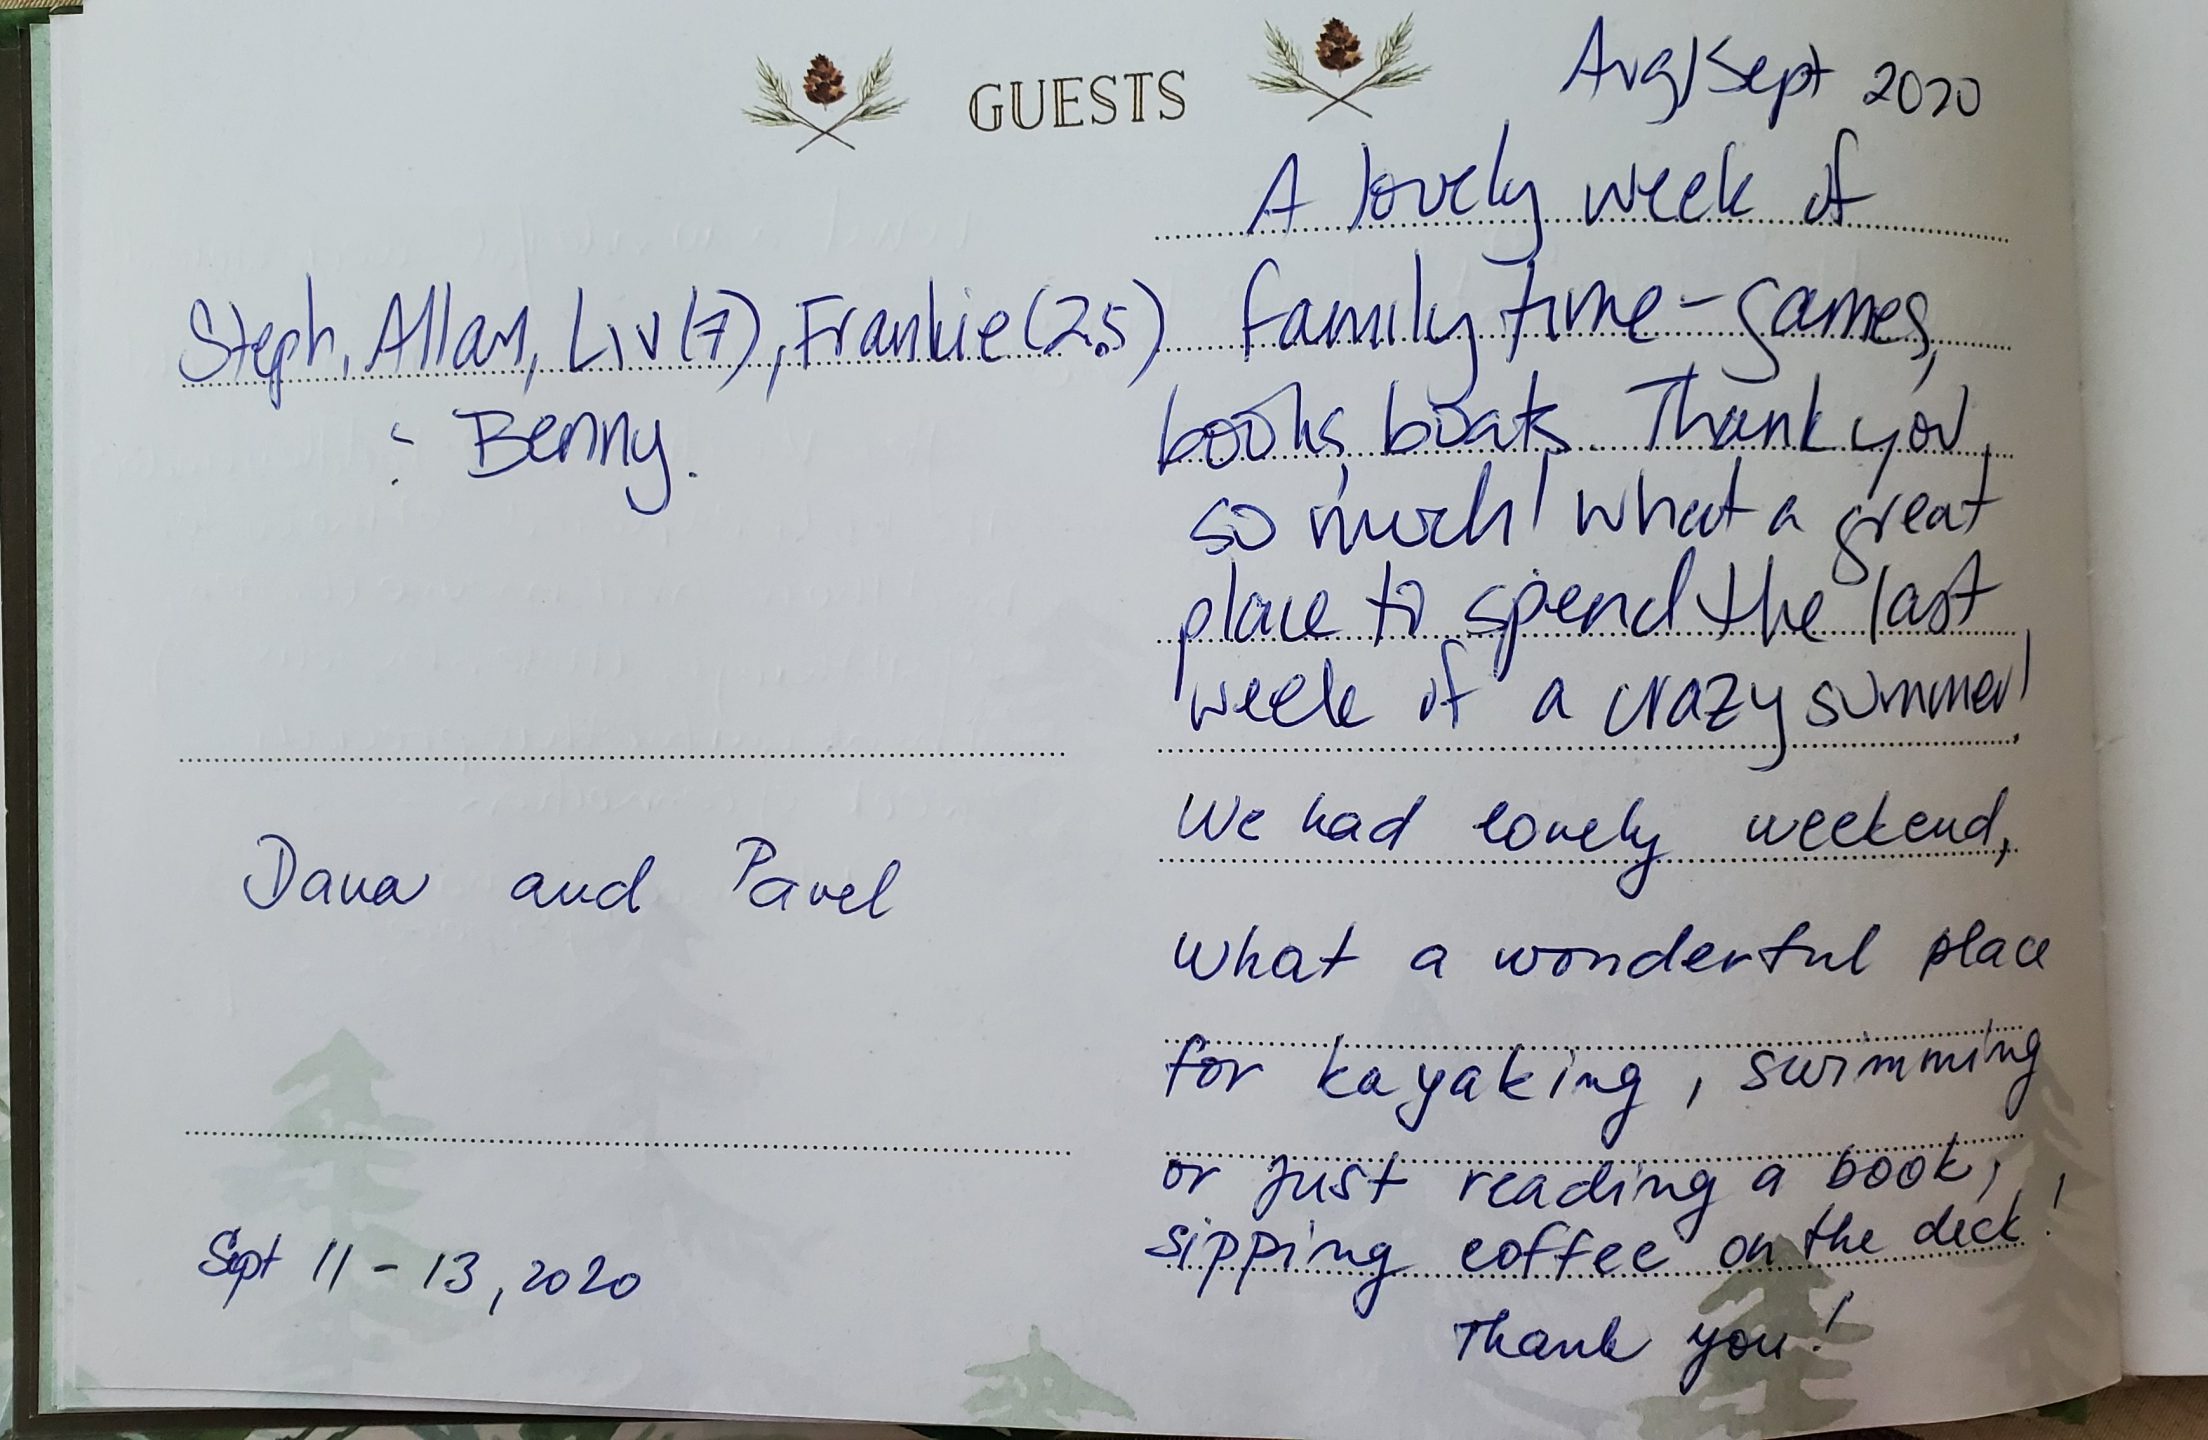 GUESTS
Aug/Sept 2020
Steph, Allan, Liv (7), Frankie (2.5)
: Benny.
A lovely week of
family time - games,
books, boats. Thank you
so much! What a great
place to spend the last
week of a crazy summer!
Dana and Pavel
Sept 11 - 13, 2020
We had lovely weekend,
what a wonderful place
for kayaking, swimming
or just reading a book,
sipping coffee on the deck!
Thank you!